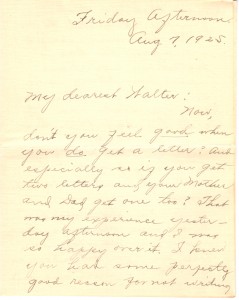 Friday Afternoon
Aug 7, 1925.
My dearest Walter:
Now,
don't you feel good when
you do get a letter? And
especially so if you get
two letters and your Mother
and Dad get one too? That
was my experience yester-
day afternoon and I was
so happy over it. I knew
you had some perfectly
good reason for not writing